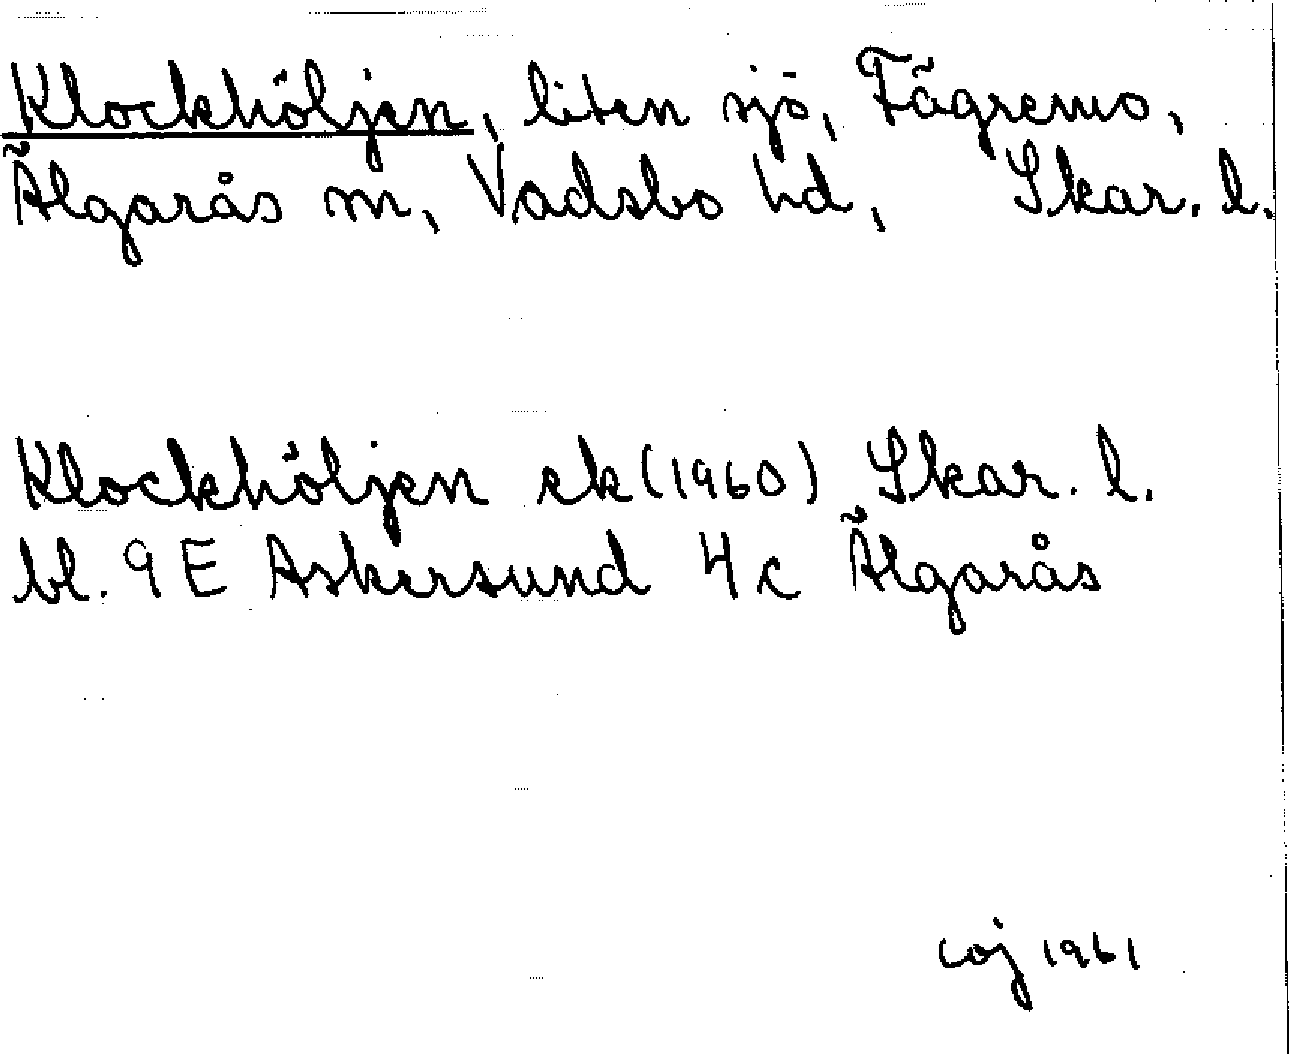 Klockhöljen, liten sjö, Fägremo,
Älgarås sn, Vadsbo hd, Skar. l.
Klockhöljen ek (1960) Skar. l.
bl. 9 E Askersund 4c Älgarås
coj 1961